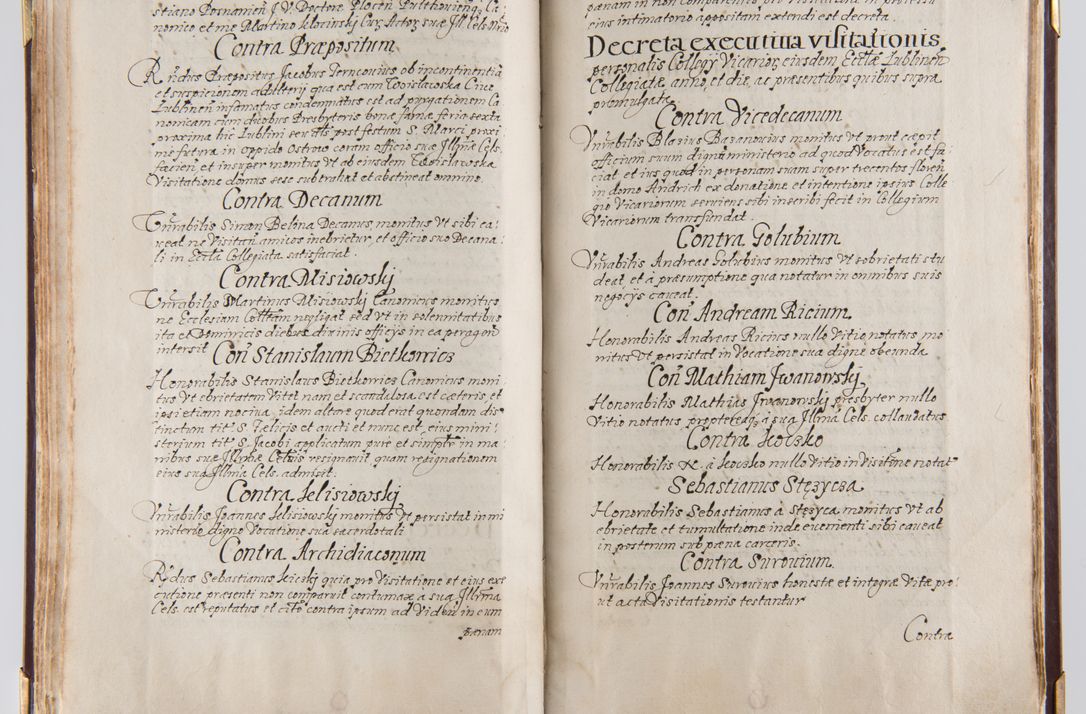 stiano Posnanien J.V. Doctore Plocen Pulthovien Ca
nonico et me Martino Klocinski Cur Actor suæ Ill Cels
Contra Præpositum
Rndus Præpositus Jacobus Ternconius ob incontinentiã
et suspicionem adulterij qua est cum Woislawska Cive
Lublinen infamatus condemnatus est ad purgationem Ca
nonicam cum duobus Presbyteris bonæ famæ feria sexta
proxima hic Lublini seu post festum S. Marci proxi
me futura in oppido Ostrow coram officio suæ Illmæ Cels.
facien et insuper monitus vt ab eiusdem Woislawska
Visitatione domus sese subtrahat et abstineat omnino.
Contra Decanum
Vnrabilis Simon Belona Decanus, monitus vt sibi ca
ueat ne Visitan amicos inebrietur, et officio suo Decana
li in Ecclã Collegiata satisfaciat.
Contra Misiowskj
Vnrabilis Martinus Misiowskj Canonicus monitus
ne Ecclesiam Collem negligat sed vt in solennitatibus
ita et Dominicis diebus diuinis officijs in ea peragen
intersit
Con Stanislaum Bietkowicz
Honorabilis Stanislaus Bietkowicz Canonicus moni
tus vt ebrietatem vitet nam et scandalosa est cæteris, et
ipsi etiam nociua, idem altare quod erat quondam dis
tinctum tit S. Felicis et aucti et nunc est, eius mini
sterium tit S. Jacobi applicatum pure et simplr in ma
nibus suæ Illmæ Celsnis resignauit quam resignationem
eius sua Illma Cels. admisit.
Contra Lelisiowskj
Vnrabilis Joannes Lelisiowskj monitus vt persistat in mi
misterio digne Vocatione sua sacerdotali
Contra Archidiaconum
Rdus Sebastianus quia pro Visitatione et eius exe
cutione præsenti non comparuit contumax a sua Illma
Cels. est reputatus et cito contra ipsum ad Viden in eum
pænam
pænam in non comparentes
eius intimatorio appositam extendi est decreta.
Decreta executiua visitationis
personalis Collegij Vicarior eiusdem Ecclæ Lublinen
Collegiatæ anno, et die, ac præsentibus quibus supra
promulgata
Contra Vicedecanum
Vnrabilis Blasius Basanouius monitus vt prout cæpit
officium suum digne ministerio ad quod Vocatus est fa
ciat et ius quod in personam suam super trecentos floren
in domo Andrich ex donatione et intentione ipsius Colle
gio Vicariorum seruiens sibi inscribi fecit in Collegium
Vicariorum transfundat.
Contra Golubium
Vnrabilis Andreas Golubius monitus vt sobrietati stu
deat, et à præsumptione qua notatur in omnibus suis
negocijs caueat.
Con Andream Ricium.
Honorabilis Andreas Ricius nullo Vitio notatus mo
nitus vt persistat in Vocatione sua digne obeunda
Con Mathiam Jwanowskj
Honorabilis Mathias Jwanowskj presbyter nullo
Vitio notatus, proptereaq à sua Illma Cels. collaudatus
Contra Koczko
Honorabilis N. à Koczko nullo Vitio in Visitne notat
Sebastianus Stęzycza
Honorabilis Sebastianus à Stęsyca monitus vt ab
ebrietate et tumultatione inde euenienti sibi caueat
in posterum sub pæna carceris.
Contra Surouium.
Vnrabilis Joannes Surouius honestæ et integræ Vitæ pro
ut acta Visitationis testantur
Contra